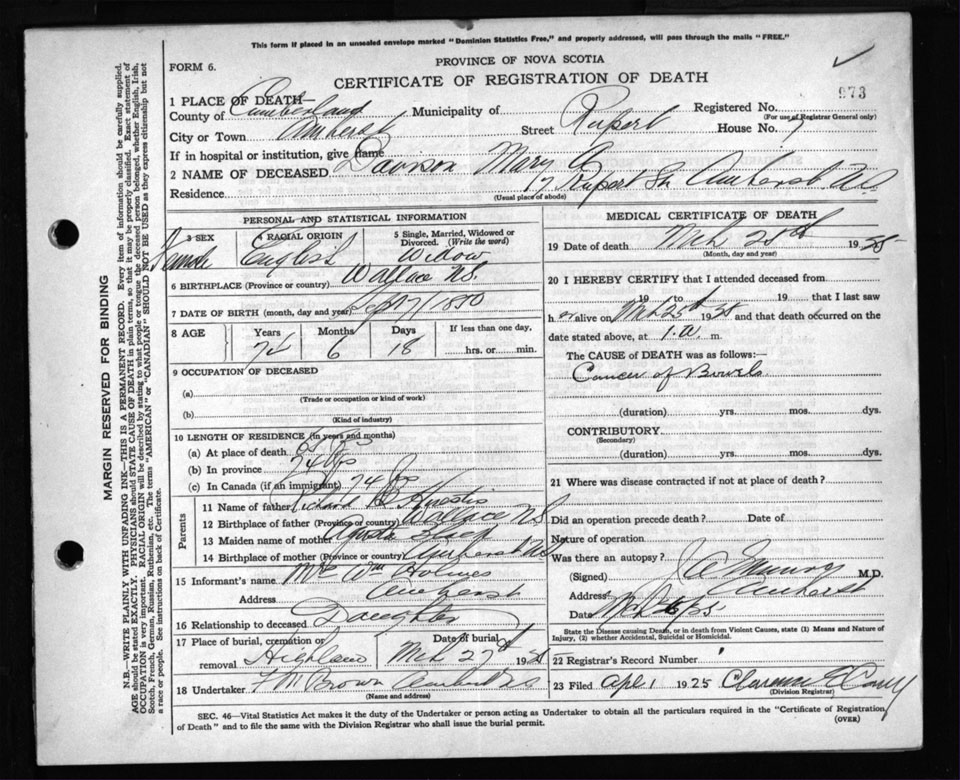 This form if placed in an unsealed envelope marked "Dominion Statistics Free," and properly addressed, will pass through the mails "FREE."
FORM 6.
PROVINCE OF NOVA SCOTIA
CERTIFICATE OF REGISTRATION OF DEATH
973
1 PLACE OF DEATH—
County of Cumberland Municipality of Registered No.
(For use of Registrar General only)
City or Town Amherst Street Rupert House No.
If in hospital or institution, give name
2 NAME OF DECEASED Davison Mary A
Residence 17 Rupert St. Amherst N.S.
(Usual place of abode)
PERSONAL AND STATISTICAL INFORMATION
3 SEX Female
RACIAL ORIGIN English
5 Single, Married, Widowed or Divorced. (Write the word) Widow
6 BIRTHPLACE (Province or country) Wallace N.S.
7 DATE OF BIRTH (month, day and year) Sept 7/1850
8 AGE Years Months Days If less than one day.
74 6 18 hrs. or min.
9 OCCUPATION OF DECEASED
(a)
(Trade or occupation or kind of work)
(b)
(Kind of industry)
10 LENGTH OF RESIDENCE (in years and months)
(a) At place of death
(b) In province 74 yrs
(c) In Canada (if an immigrant) 74 yrs
Parents
11 Name of father Richard B Huestis
12 Birthplace of father (Province or country) Wallace N.S.
13 Maiden name of mother
14 Birthplace of mother (Province or country) Amherst N.S.
15 Informant's name Mrs Wm Holmes
Address Amherst
16 Relationship to deceased Daughter
17 Place of burial, cremation or removal Highland Date of burial Mch 27th 1925
18 Undertaker F M Brown Amherst N.S.
(Name and address)
MEDICAL CERTIFICATE OF DEATH
19 Date of death Mch 25th 1925
(Month, day and year)
20 I HEREBY CERTIFY that I attended deceased from
19 to 19 that I last saw
h er alive on Mch 25th 1925 and that death occurred on the
date stated above, at 1. a. m.
The CAUSE OF DEATH was as follows:—
Cancer of Bowels
(duration) yrs. mos. dys.
CONTRIBUTORY
(Secondary)
(duration) yrs. mos. dys.
21 Where was disease contracted if not at place of death?
Did an operation precede death? Date of
Nature of operation
Was there an autopsy?
(Signed) M.D.
Address Amherst
Date
State the Disease causing Death, or in death from Violent Causes, state (1) Means and Nature of Injury, (2) whether Accidental, Suicidal or Homicidal.
22 Registrar's Record Number
23 Filed Apl 1 1925 Clarence
(Division Registrar)
SEC. 46—Vital Statistics Act makes it the duty of the Undertaker or person acting as Undertaker to obtain all the particulars required in the "Certificate of Registration
of Death" and to file the same with the Division Registrar who shall issue the burial permit.
(OVER)
MARGIN RESERVED FOR BINDING
N.B.—WRITE PLAINLY WITH UNFADING INK—THIS IS A PERMANENT RECORD. Every item of information should be carefully supplied.
AGE should be stated EXACTLY. PHYSICIANS should STATE CAUSE OF DEATH in plain terms, so that it may be properly classified. Exact statement of
OCCUPATION is very important. RACIAL ORIGIN will be described by stating to what people or tongue the deceased person belonged, whether English, Irish,
Scotch, French, German, Russian, Ruthenian, etc. The terms "AMERICAN" or "CANADIAN" SHOULD NOT BE USED as they express citizenship but not
a race or people. See instructions on back of Certificate.